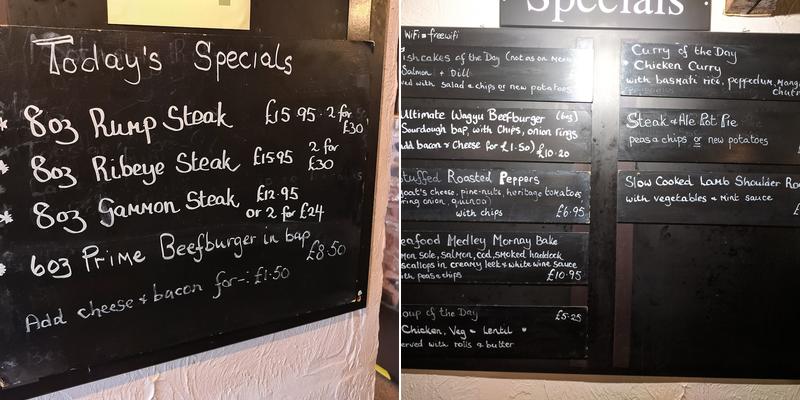 Today's Specials
8oz Rump Steak £15.95 · 2 for £30
8oz Ribeye Steak £15.95 2 for £30
8oz Gammon Steak £12.95
or 2 for £24
6oz Prime Beefburger in bap £8.50
Add cheese & bacon for -: £1.50
Specials
WiFi = freewifi
ishcakes of the Day (not as on Menu)
Salmon + Dill
ved with salad & chips or new potatoes
Ultimate Wagyu Beefburger (6oz)
Sourdough bap, with Chips, onion rings
dd bacon & Cheese for £1.50) £10.20
tuffed Roasted Peppers
oat's cheese, pine-nuts, heritage tomatoes
ring onion, quinoa)
with chips £6.95
eafood Medley Mornay Bake
mon sole, salmon, cod, smoked haddock
scallops in creamy leek & white wine sauce
ith peas & chips £10.95
oup of the Day £5.25
Chicken, Veg = Lentil
erved with rolls & butter
Curry of the Day
Chicken Curry
with basmati rice, poppedum, Mang
chut
Steak & Ale Pot Pie
peas & chips or new potatoes
Slow Cooked Lamb Shoulder Ro
with vegetables & Mint sauce £